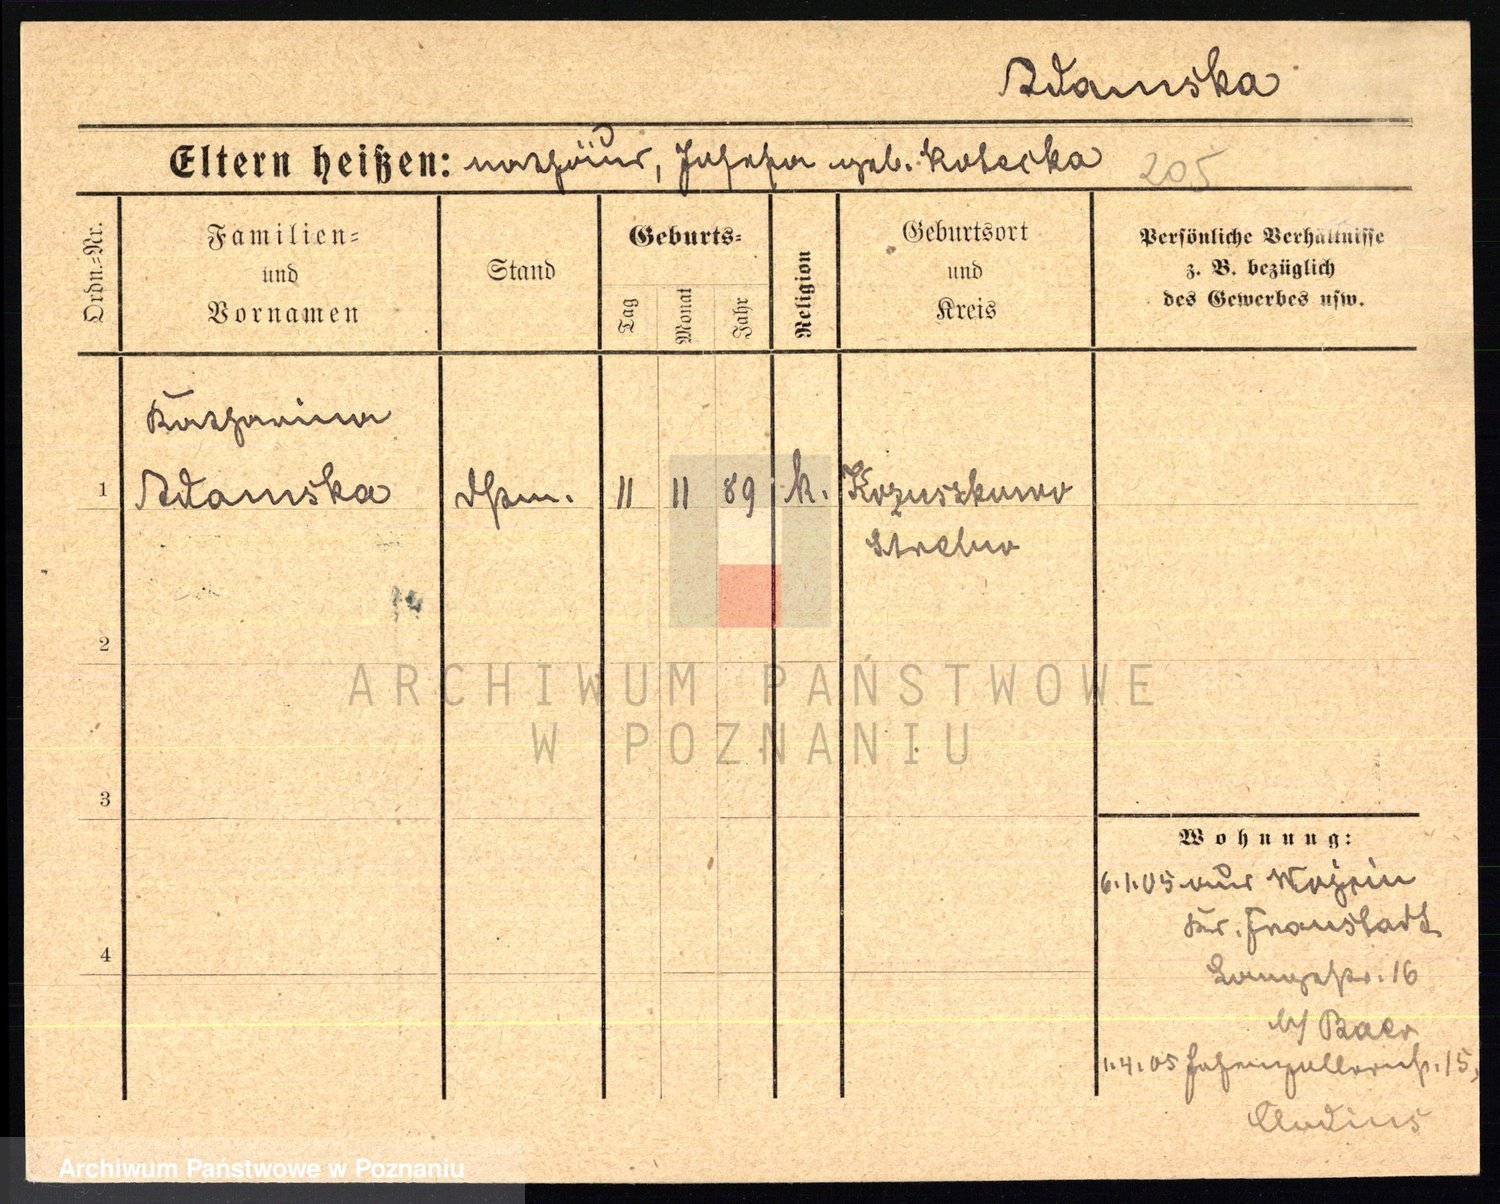 Adamska
Eltern heißen: Mathäus, Josefa geb. Kotecka 205
Ordn.-Nr.
Familien=
und
Vornamen
Stand
Geburts=
Tag
Monat
Jahr
Religion
Geburtsort
und
Kreis
Persönliche Verhältnisse
z. B. bezüglich
des Gewerbes usw.
Katharina
1 Adamska Dstm. 11 11 89 k. Kozuszkowo
Strelno
2
ARCHIWUM PAŃSTWOWE
W POZNANIU
3
Wohnung:
6.1.05 aus
Kr. Fraustadt
4
Langestr. 16
b/ Baer
1.4.05 Hohenzollernstr. 15,
Archiwum Państwowe w Poznaniu